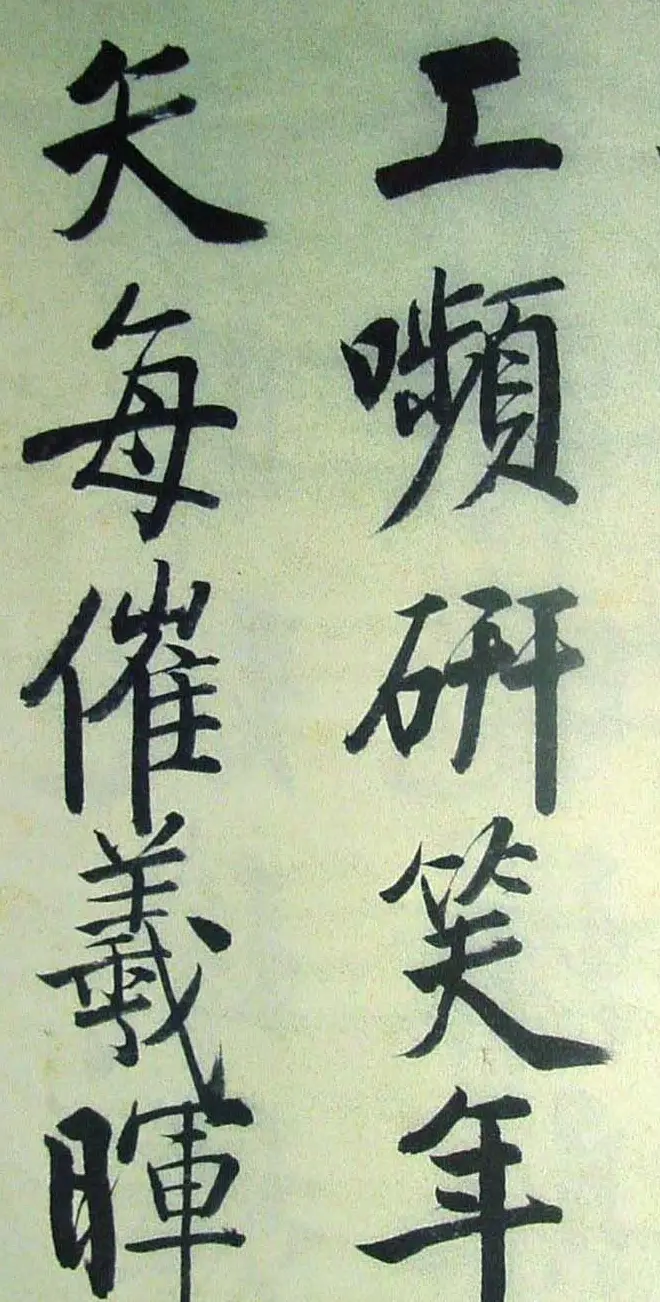 工嚬研笑年
矢每催羲暉